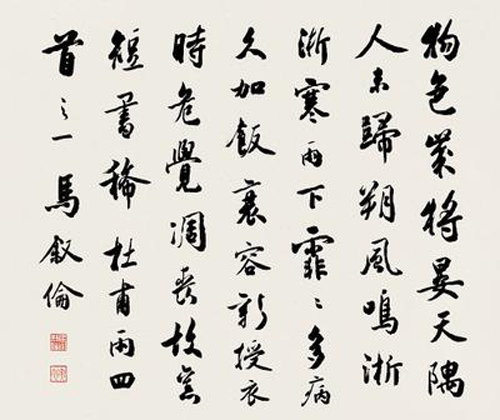 物色歲將晏天隅
人未歸朔風鳴淅
淅寒雨下霏〻多病
久加飯衰容新授衣
時危覺凋喪故舊
短書稀杜甫雨四
首之一馬叙倫